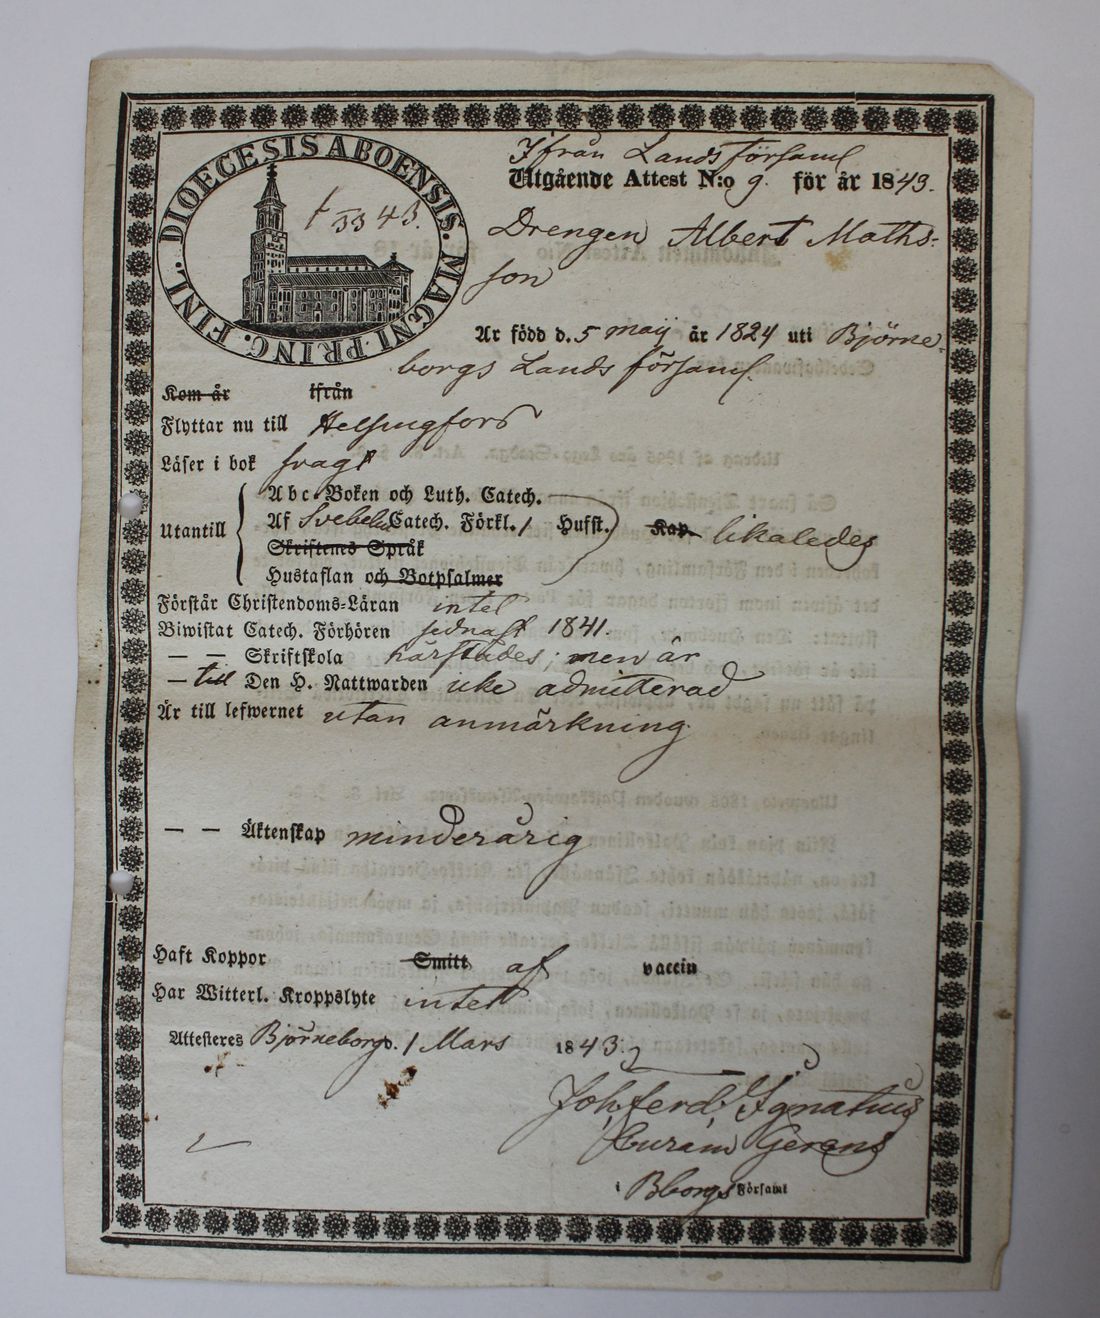 DIOECESIS ABOENSIS. MAGNI. PRINC. FINL.
33 43.
Ifrån Lands församl
Utgående Attest N:o 9. för år 1843.
Drengen Albert Maths-
son
Är född d. 5 maij år 1824 uti Björne-
borgs Lands församl.
Kom år ifrån
Flyttar nu till Helsingfors
Läser i bok svagt
Abc-Boken och Luth. Catech.
Utantill Af Svebelii Catech. Förkl. / Hufst. Kap. likaledes
Skriftenes Språk
Hustaflan och Botpsalmer
Förstår Christendoms-Läran intet
Biwistat Catech. Förhören sednast 1841.
— — Skriftskola härstädes; men är
— till Den H. Nattwarden icke admitterad
Är till lefwernet utan anmärkning
— — Äktenskap minderårig
Haft Koppor Smitt af vaccin
Har Witterl. Kroppslyte intet
Attesteres Björneborg d. 1 Mars 1843.
Joh. Ferd. Ignatius
Curam Gerens
i Bborgs Församl